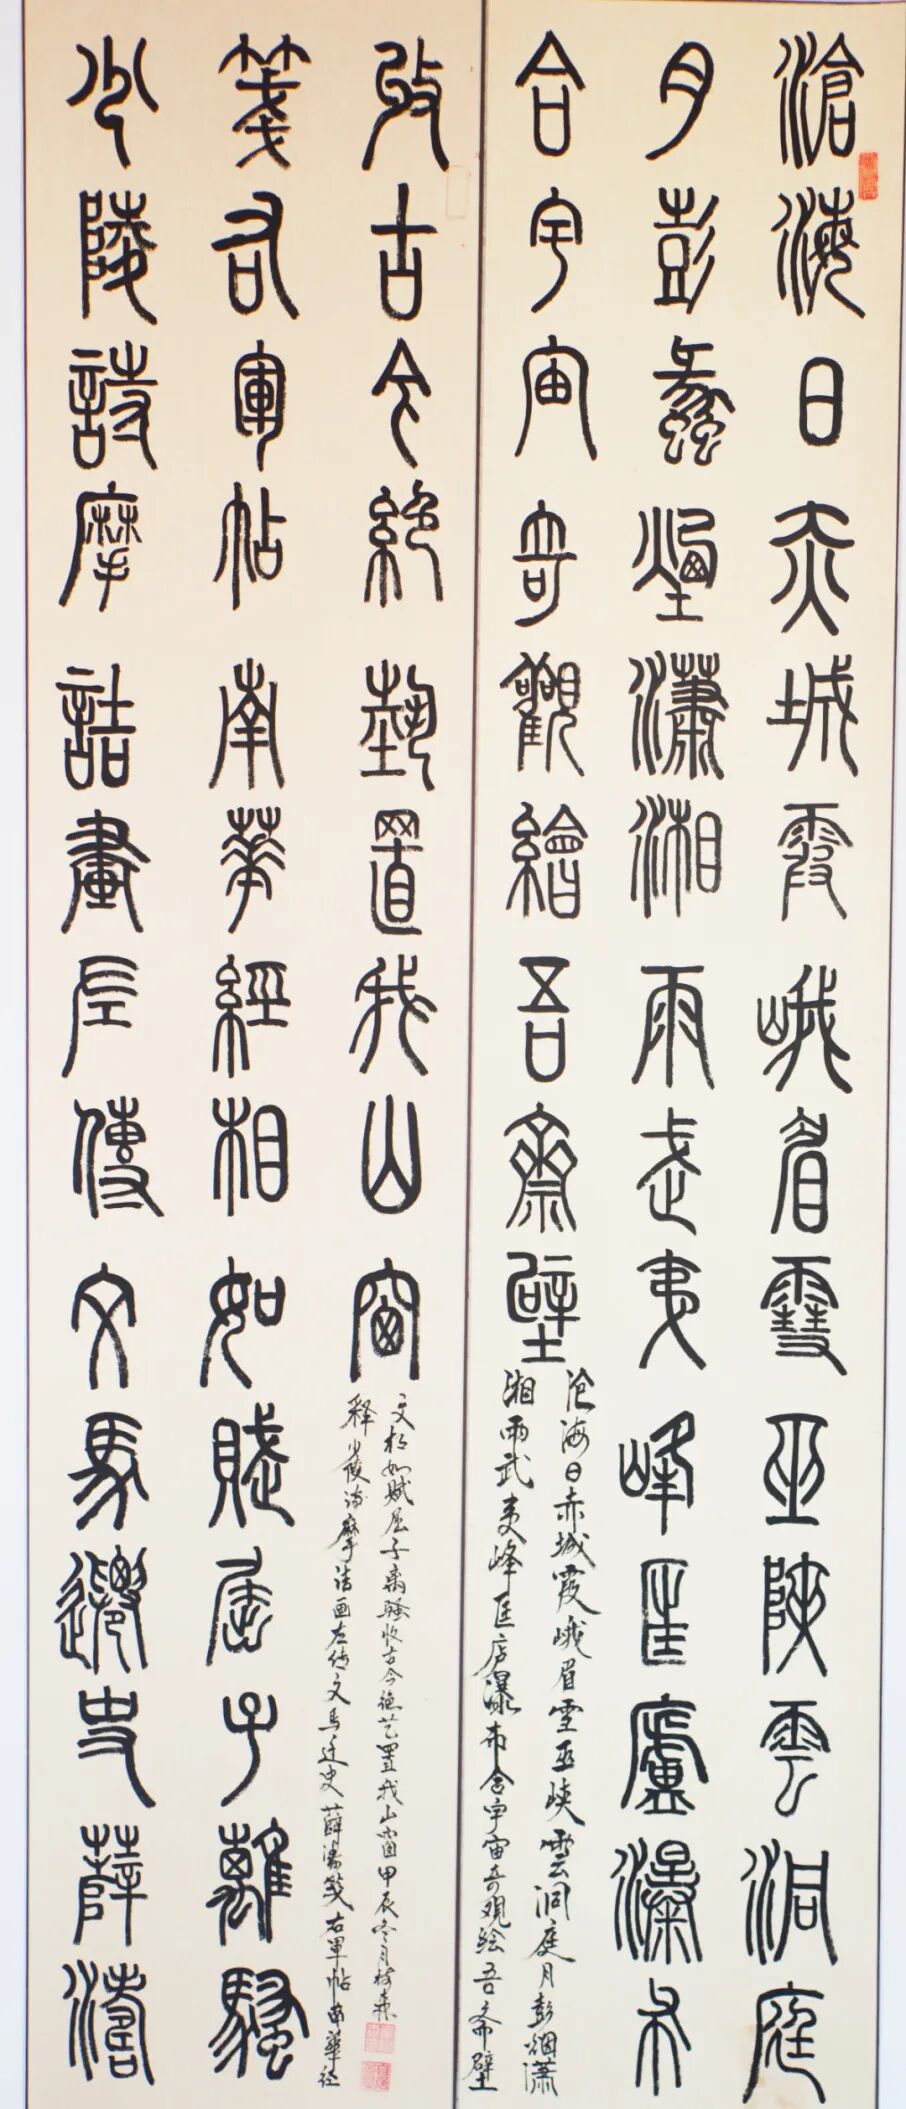 滄海日赤城霞峨眉雪巫峽雲洞庭
月彭蠡煙瀟湘雨武夷峰匡廬瀑布
合宇宙奇觀繪吾齋壁
沧海日赤城霞峨眉雪巫峡雲洞庭月彭烟潇
湘雨武夷峰匡庐瀑布合宇宙奇观绘吾斋壁
少陵詩摩詰畫左傳文馬遷史薛濤
箋右軍帖南華經相如賦屈子離騷
收古今絕藝置我山窗
释少陵诗摩诘画左传文马迁史薛涛笺右军帖南华经
文相如赋屈子离骚收古今绝艺置我山窗甲辰冬月